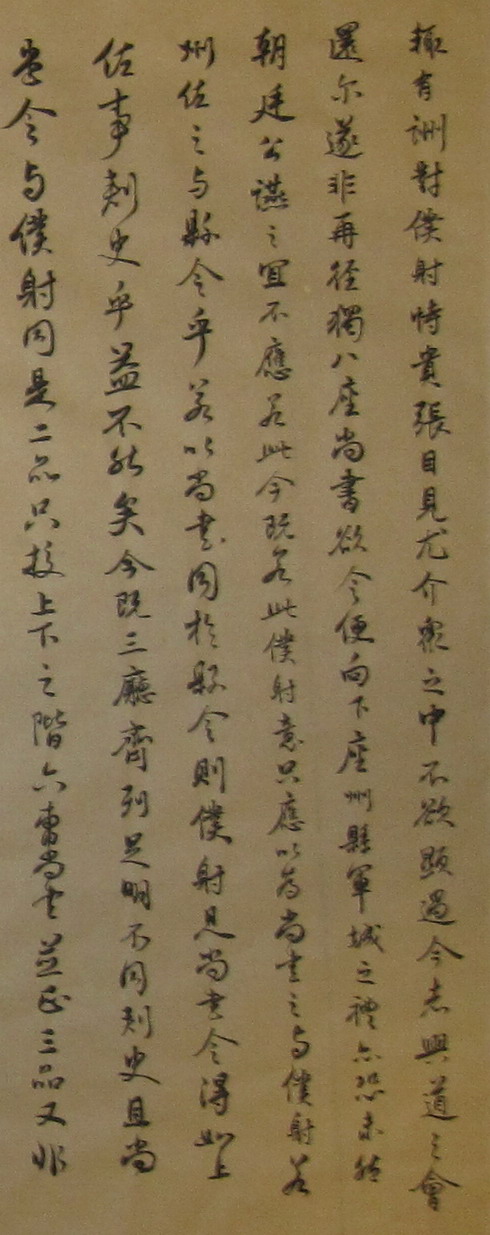 輒有酬對僕射恃貴張目見尤介衆之中不欲顯過今者興道之會
還尔遂非再徑獨八座尚書欲令便向下座州縣軍城之禮亦恐未然
朝廷公讌之宜不應若此今既若此僕射意只應以為尚書之与僕射若
州佐之与縣令乎若以尚書同於縣令則僕射見尚書令得如上
佐事刾史乎益不然矣今既三廳齊列足明不同刾史且尚
書令与僕射同是二品只挍上下之階六曹尚书並正三品又非